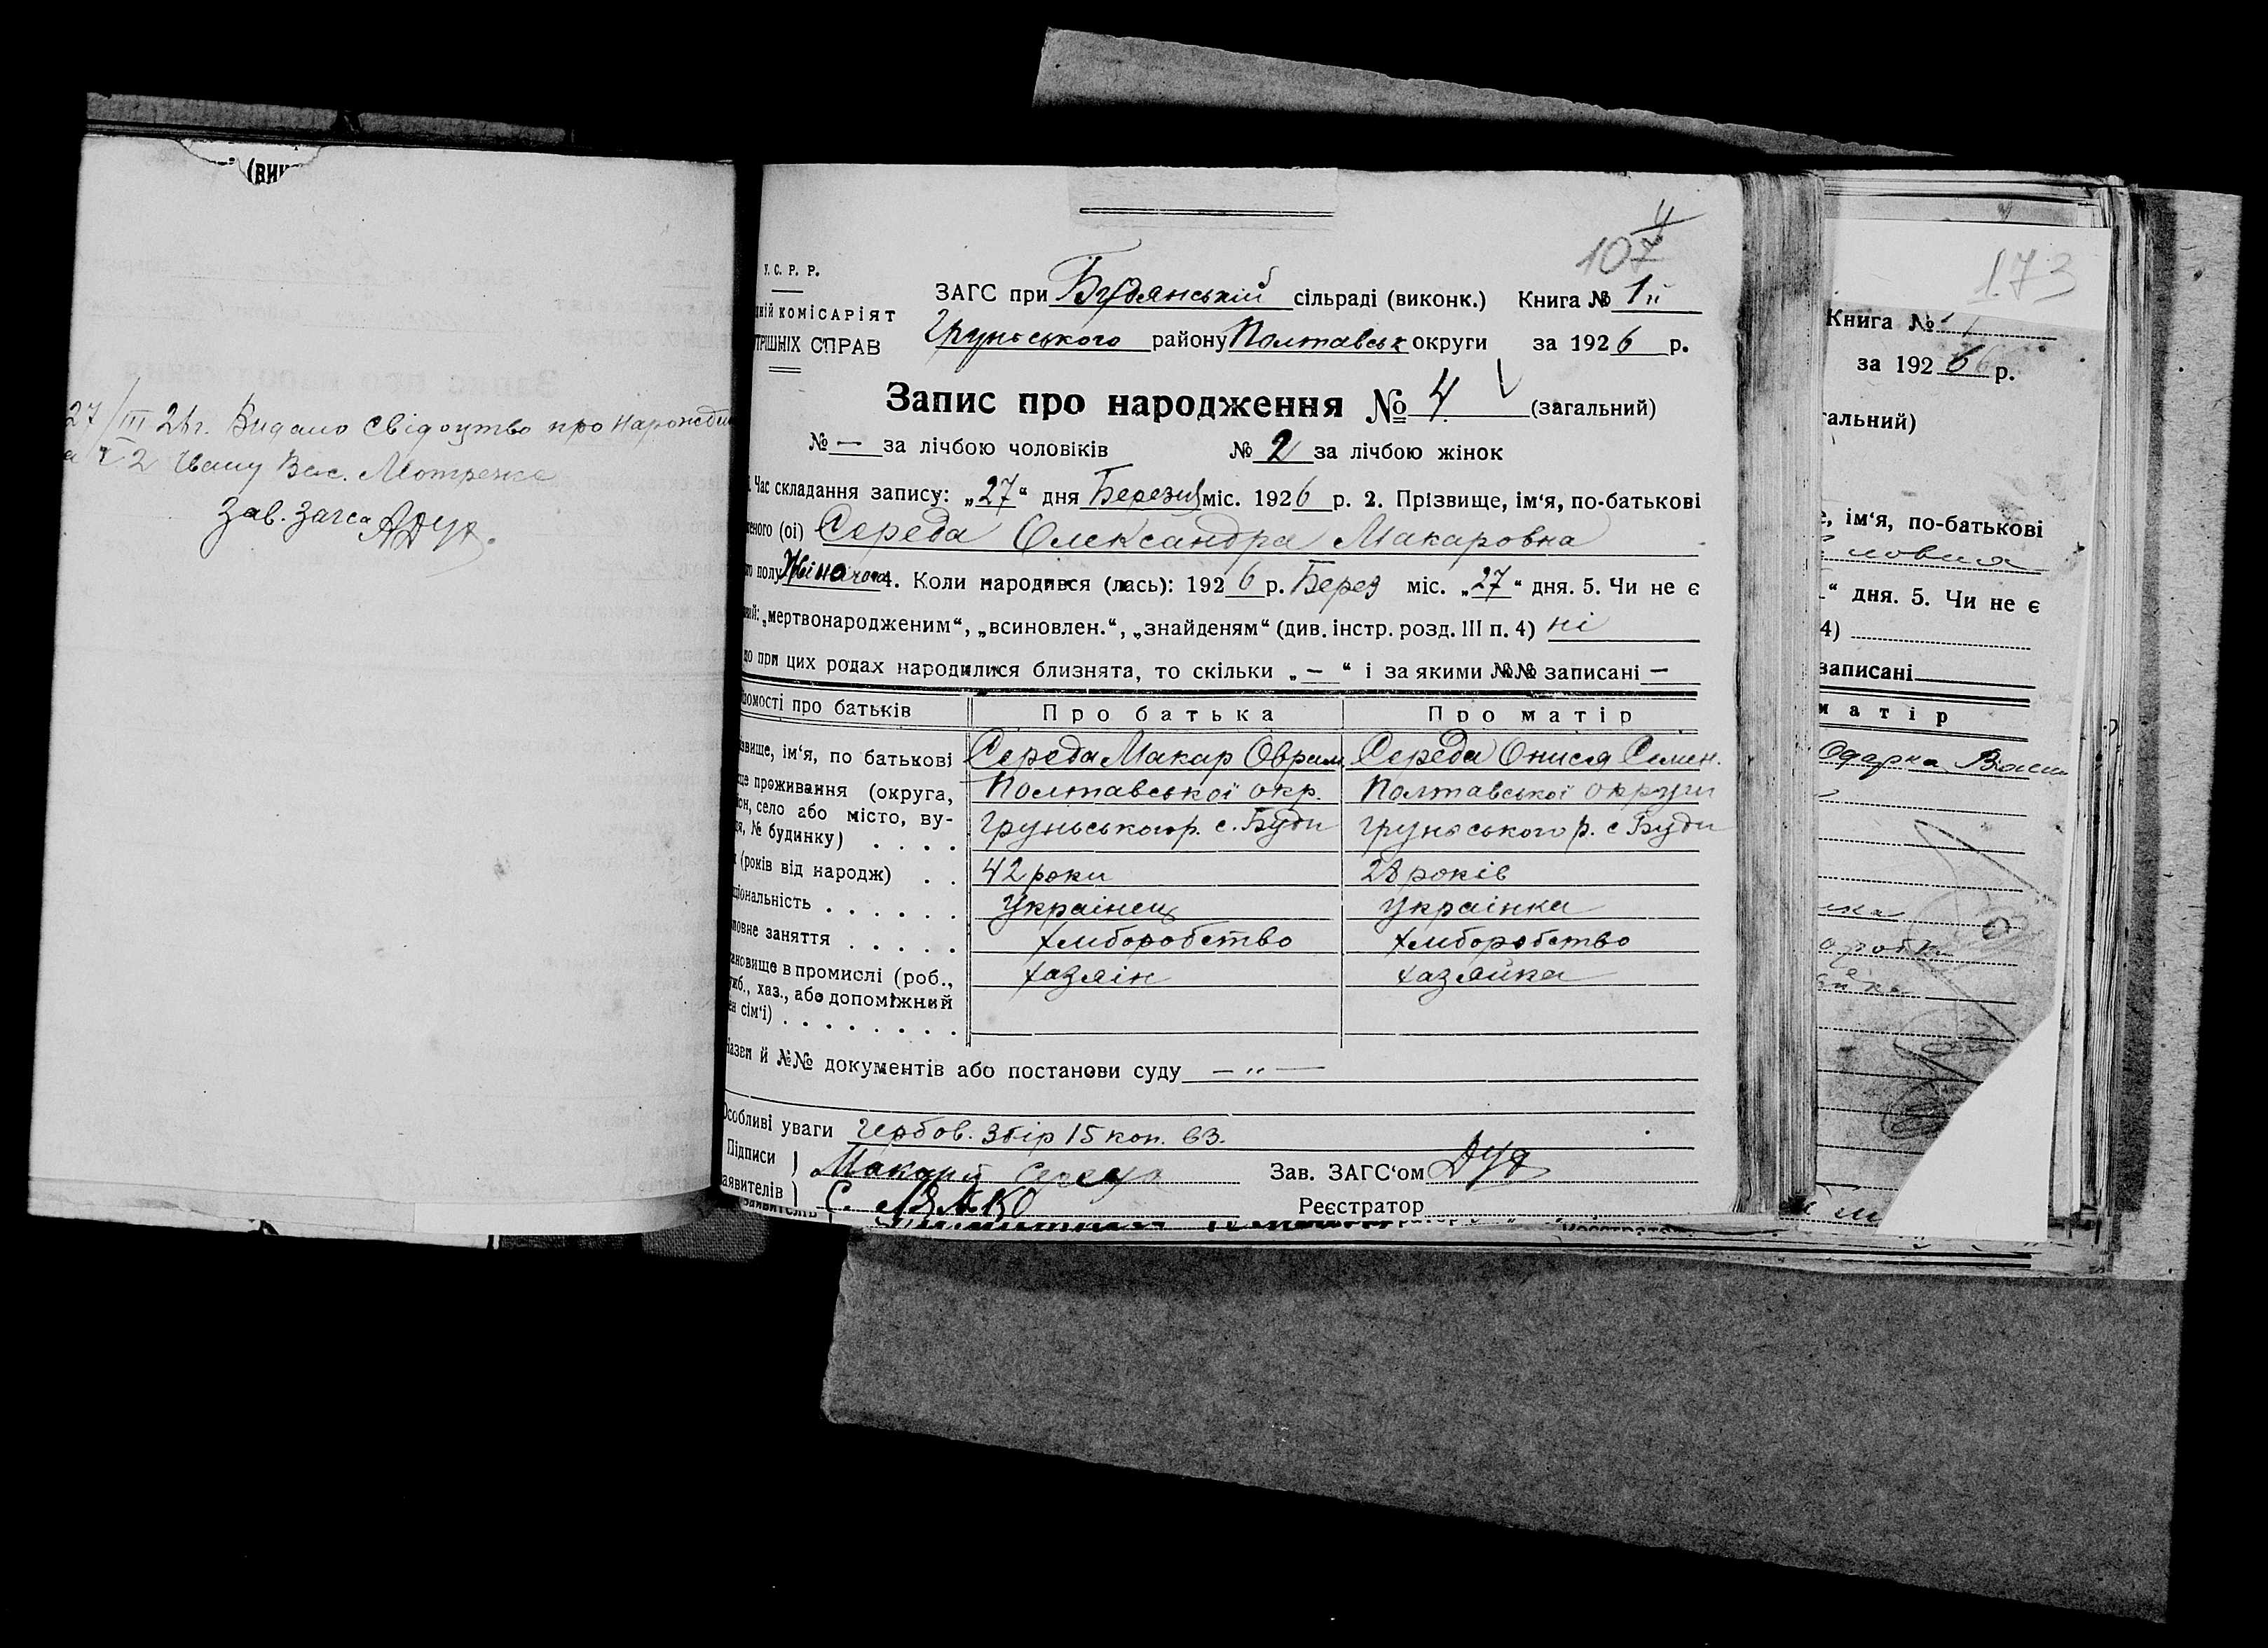 (вик
27/III 26 г. Видано Свідоцтво про народжен
2 Ивану Вас. Мотренко
Зав. Загса
4
107
У. С. Р. Р.
дній комісаріят
трішніх справ
ЗАГС при Будянській сільраді (виконк.) Книга № 1й
Груньського району Полтавськ округи за 1926 р.
Запис про народження № 4 (загальний)
№ — за лічбою чоловіків № 2 за лічбою жінок
Час складання запису: „27“ дня Березня міс. 1926 р. 2. Прізвище, ім‘я, по-батькові
женого (ої) Середа Олександра Макаровна
го полу Жіночого 4. Коли народився (лась): 1926 р. Берез міс. „27“ дня. 5. Чи не є
ний: „мертвонародженим“, „всиновлен.“, „знайденям“ (див. інстр. розд. III п. 4) ні
що при цих родах народилися близнята, то скільки „—“ і за якими №№ записані —
домості про батьків Про батька Про матір
звище, ім‘я, по батькові Середа Макар Оврам Середа Онися Семен.
це проживання (округа, Полтавської окр. Полтавської округи
он, село або місто, ву-
я, № будинку) . . . . Груньського р. с. Буди Груньського р. с Буди
к (років від народж) . . 42 роки 28 років
ціональність . . . . . . Українец Українка
новне заняття . . . . . хліборобство хліборобство
ановище в промислі (роб., хазяін хазяйка
ужб., хаз., або допоміжний
ен сім‘ї) . . . . . . . .
Назви й №№ документів або постанови суду — „ —
Особливі уваги Гербов. збір 15 коп. вз.
Підписи Макарій Середа Зав. ЗАГС‘ом Дуд
аявителів С. Ляшко Реєстратор
173
Книга №
за 1926 р.
гальний)
е, ім‘я, по-батькові
“ дня. 5. Чи не є
4)
записані
матір
Одарка Васи